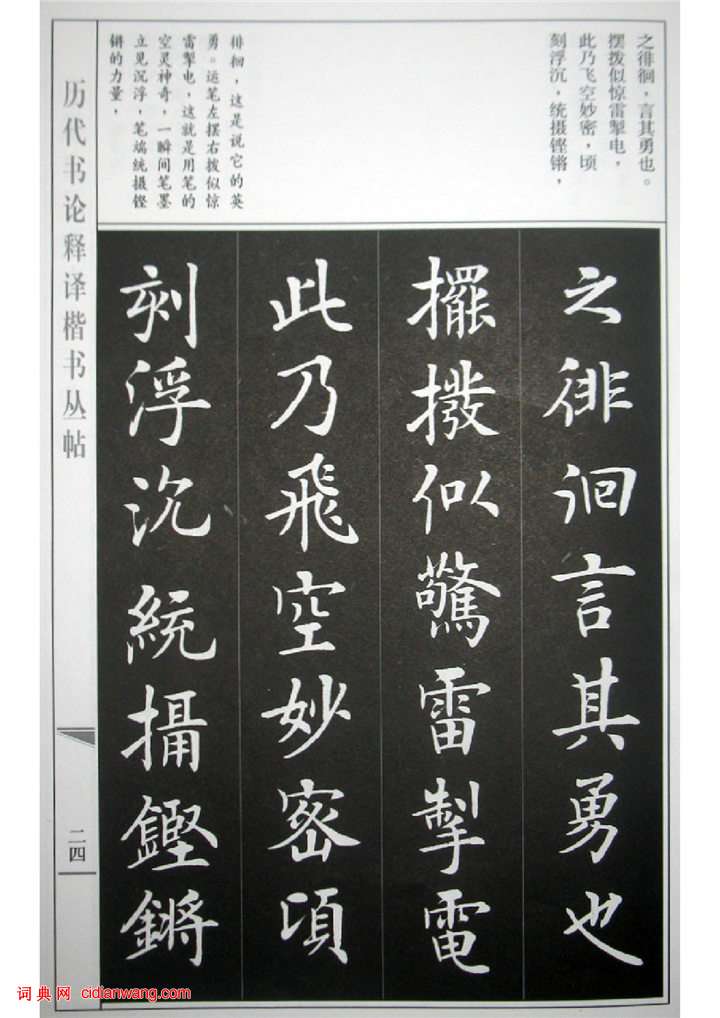 之徘徊，言其勇也。
摆拨似惊雷掣电，
此乃飞空妙密，顷
刻浮沉，统摄铿锵，
徘徊，这是说它的英
勇。运笔左摆右拨似惊
雷掣电，这就是用笔的
空灵神奇，一瞬间笔墨
立见沉浮，笔端统摄铿
锵的力量，
之徘徊言其勇也
擺撥似驚雷掣電
此乃飛空妙密頃
刻浮沉統攝鏗鏘
历代书论释译楷书丛帖
二四
词典网 cidianwang.com